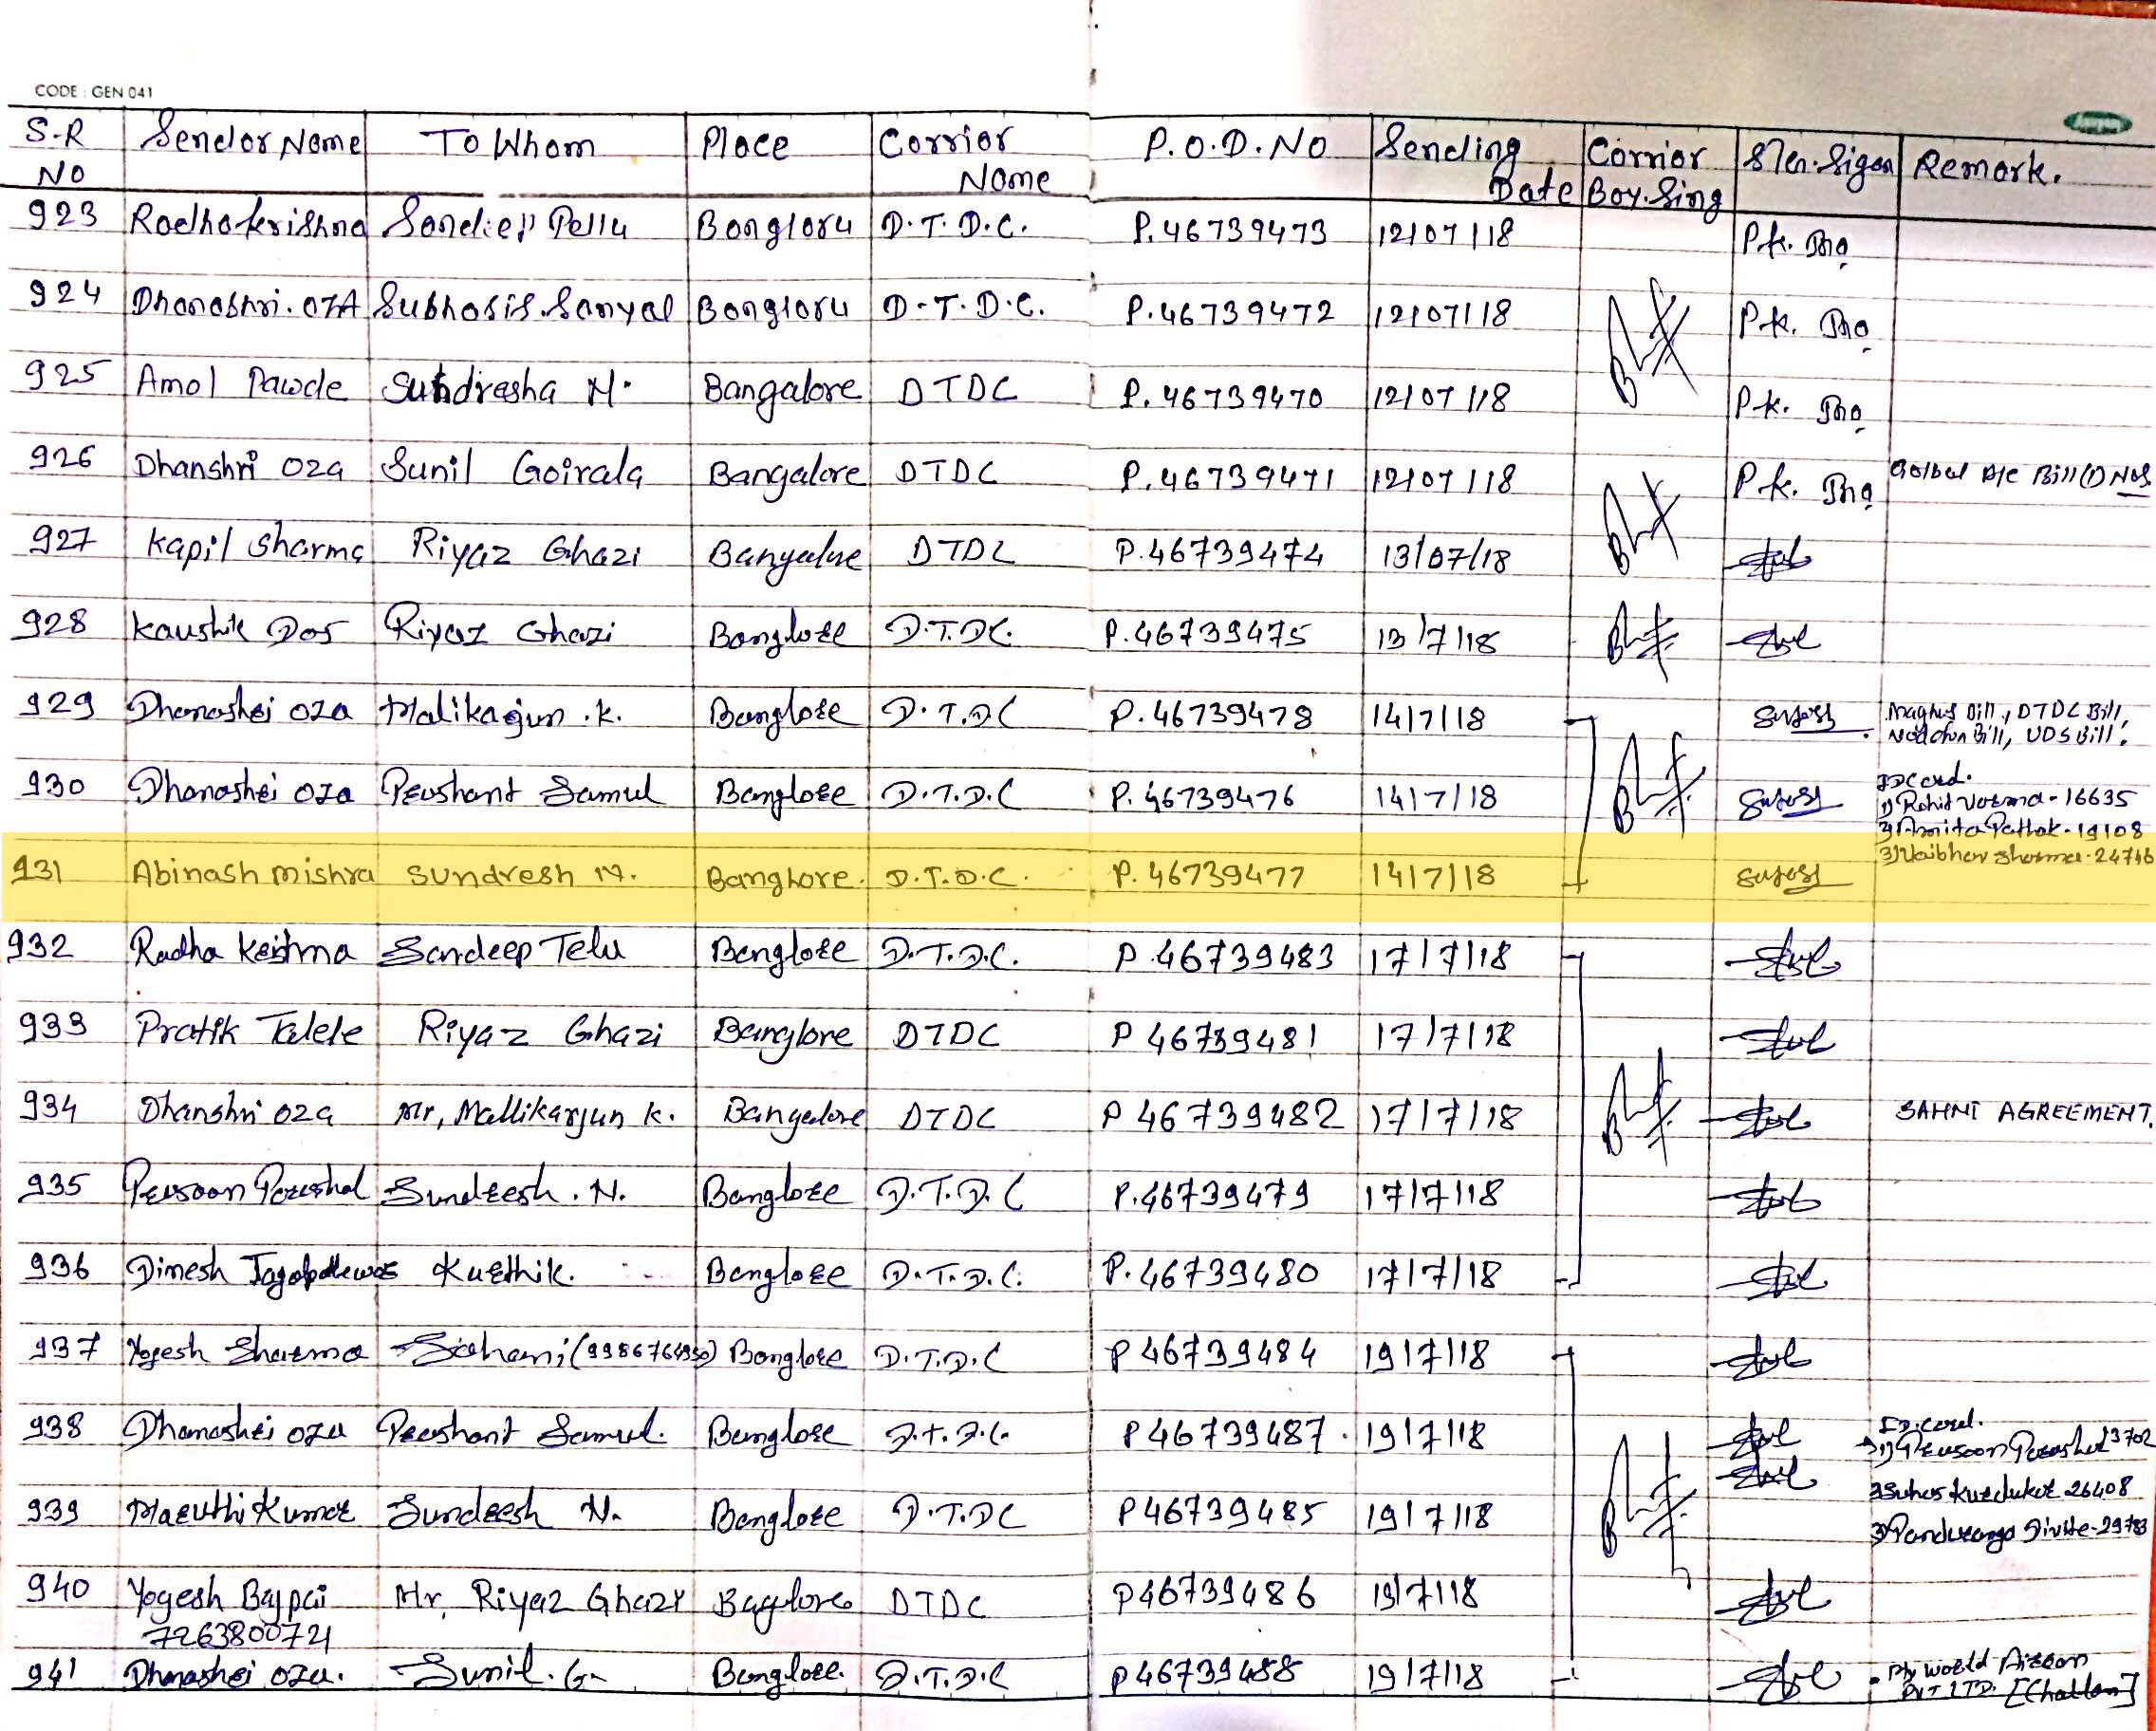 CODE : GEN 041
S-R NO Sendor Name To Whom Place Corrior Name P.O.D. NO Sending Date Corrior Boy. Sing Sen. Sigen Remark.
923 Radhakrishna Sandiep Pellu Bongloru D.T.D.C. P. 46739473 12/07/18 P.k.
924 Dhanashri. OZA Subhasis. Sanyal Bongloru D-T.D.C. P. 46739472 12/07/18 P.k.
925 Amol Pawde Sundresha N. Bangalore DTDC P. 46739470 12/07/18 P.k.
926 Dhanshri oza Sunil Goirala Bangalore DTDC P. 46739471 12/07/18 P.k. Golbal A/c Bill (1) Nos.
927 Kapil Sharma Riyaz Ghazi Bangalore DTDC P. 46739474 13/07/18
928 Kaushik Das Riyaz Ghazi Banglore D.T.DC. P. 46739475 13/7/18
929 Dhanashri oza Malikagun. K. Banglore D.T.DC P. 46739478 14/7/18 Maghus Bill, DTDC Bill,
Bill, UDS Bill.
930 Dhanashri oza Prashant Samul Banglore D.T.D.C P. 46739476 14/7/18 ID Card.
1) Rohit Verma - 16635
2) Amita Pathak - 19108
931 Abinash mishra Sundresh N. Banglore. D.T.D.C. P. 46739477 14/7/18 3) Vaibhav Sharma - 24746
932 Radha Krishna Sandeep Telu Banglore D.T.D.C. P. 46739483 17/7/18
933 Pratik Talele Riyaz Ghazi Banglore DTDC P 46739481 17/7/18
934 Dhanshri oza Mr, Mallikarjun K. Bangalore DTDC P 46739482 17/7/18 SAHNI AGREEMENT.
935 Prasoon Porashal Sundresh. N. Banglore D.T.D.C P. 46739479 17/7/18
936 Dinesh Karthik. Banglore D.T.D.C. P. 46739480 17/7/18
937 Yogesh Sharma Sahani Banglore D.T.D.C P 46739484 19/7/18
938 Dhanashri oza Prashant Samul. Banglore D.T.D.C. P 46739487. 19/7/18 ID. card.
1) Prasoon Porashal 13702
939 Maruthi Kumar Sundresh N. Banglore D.T.DC P 46739485 19/7/18 2) Suhas Kurdukar 26408
3) Panduranga 29783
940 Yogesh Bajpai Mr, Riyaz Ghazy Baglore DTDC P 46739486 19/7/18
7263800721
941 Dhanashri oza. Sunil. G. Banglore. D.T.D.C P 46739488 19/7/18 World Aircon
PVT LTD. [Challan]